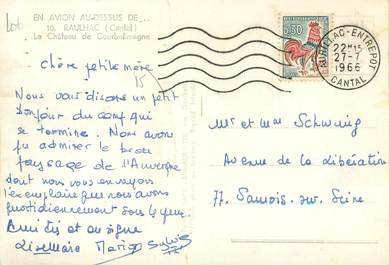 Lot
EN AVION AU-DESSUS DE...
10. RAULHAC (Cantal)
Le Château de Courbelimagne
Chère petite mère
15
Nous vous disons un petit
bonjour du camp qui
se termine. Nous avons
pu admirer le beau
paysage de l'Auvergne
dont nous vous envoyons
l'exemplaire que nous avons
quotidiennement sous les yeux.
Amitiés et au
0,30
AURILLAC-ENTREPOT
22H15
27-7
1966
CANTAL
Mr et Mme Schwing
Avenue de la libération
77. Samois. sur. Seine